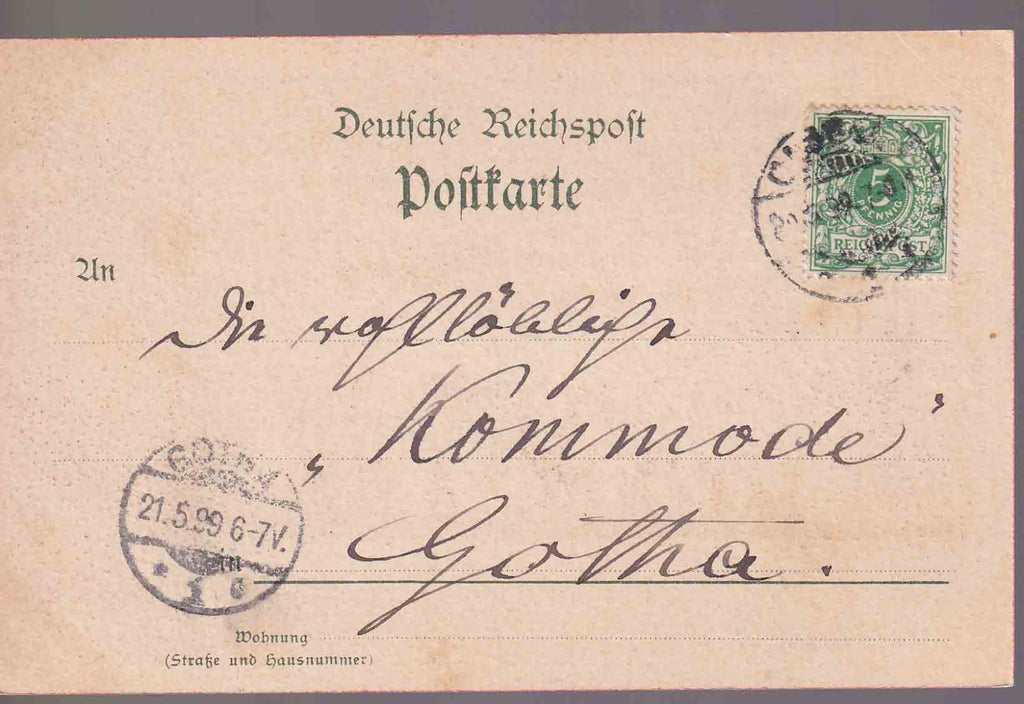 Deutsche Reichspost
Postkarte
5
PFENNIG
REICHSPOST
An
Die wohllöbliche
„Kommode“
Gotha.
GOTHA
21.5.99 6-7V.
Wohnung
(Straße und Hausnummer)